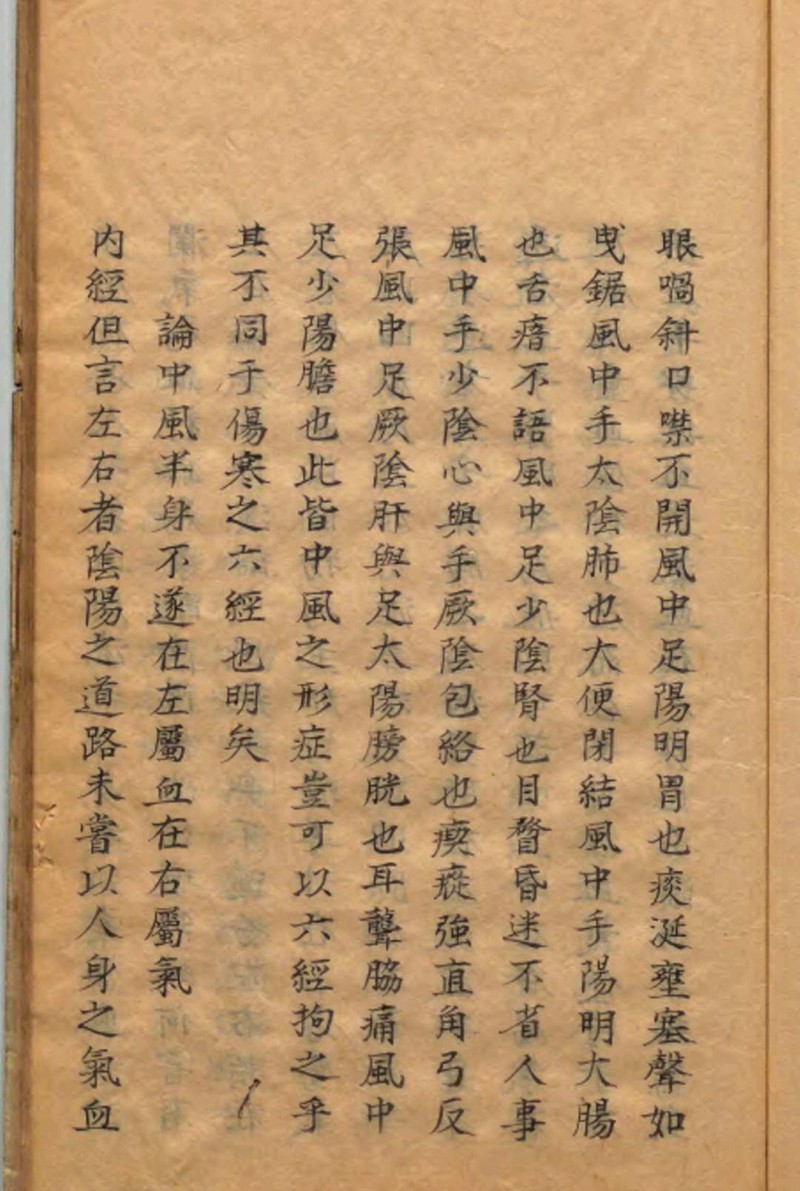 眼喎斜口噤不開風中足陽明胃也痰涎壅塞聲如
曳鋸風中手太陰肺也大便閉結風中手陽明大腸
也舌瘖不語風中足少陰腎也目瞀昏迷不省人事
風中手少陰心與手厥陰包絡也瘈瘲強直角弓反
張風中足厥陰肝與足太陽膀胱也耳聾脇痛風中
足少陽膽也此皆中風之形症豈可以六經拘之乎
其不同于傷寒之六經也明矣
論中風半身不遂在左屬血在右屬氣
内經但言左右者陰陽之道路未嘗以人身之氣血